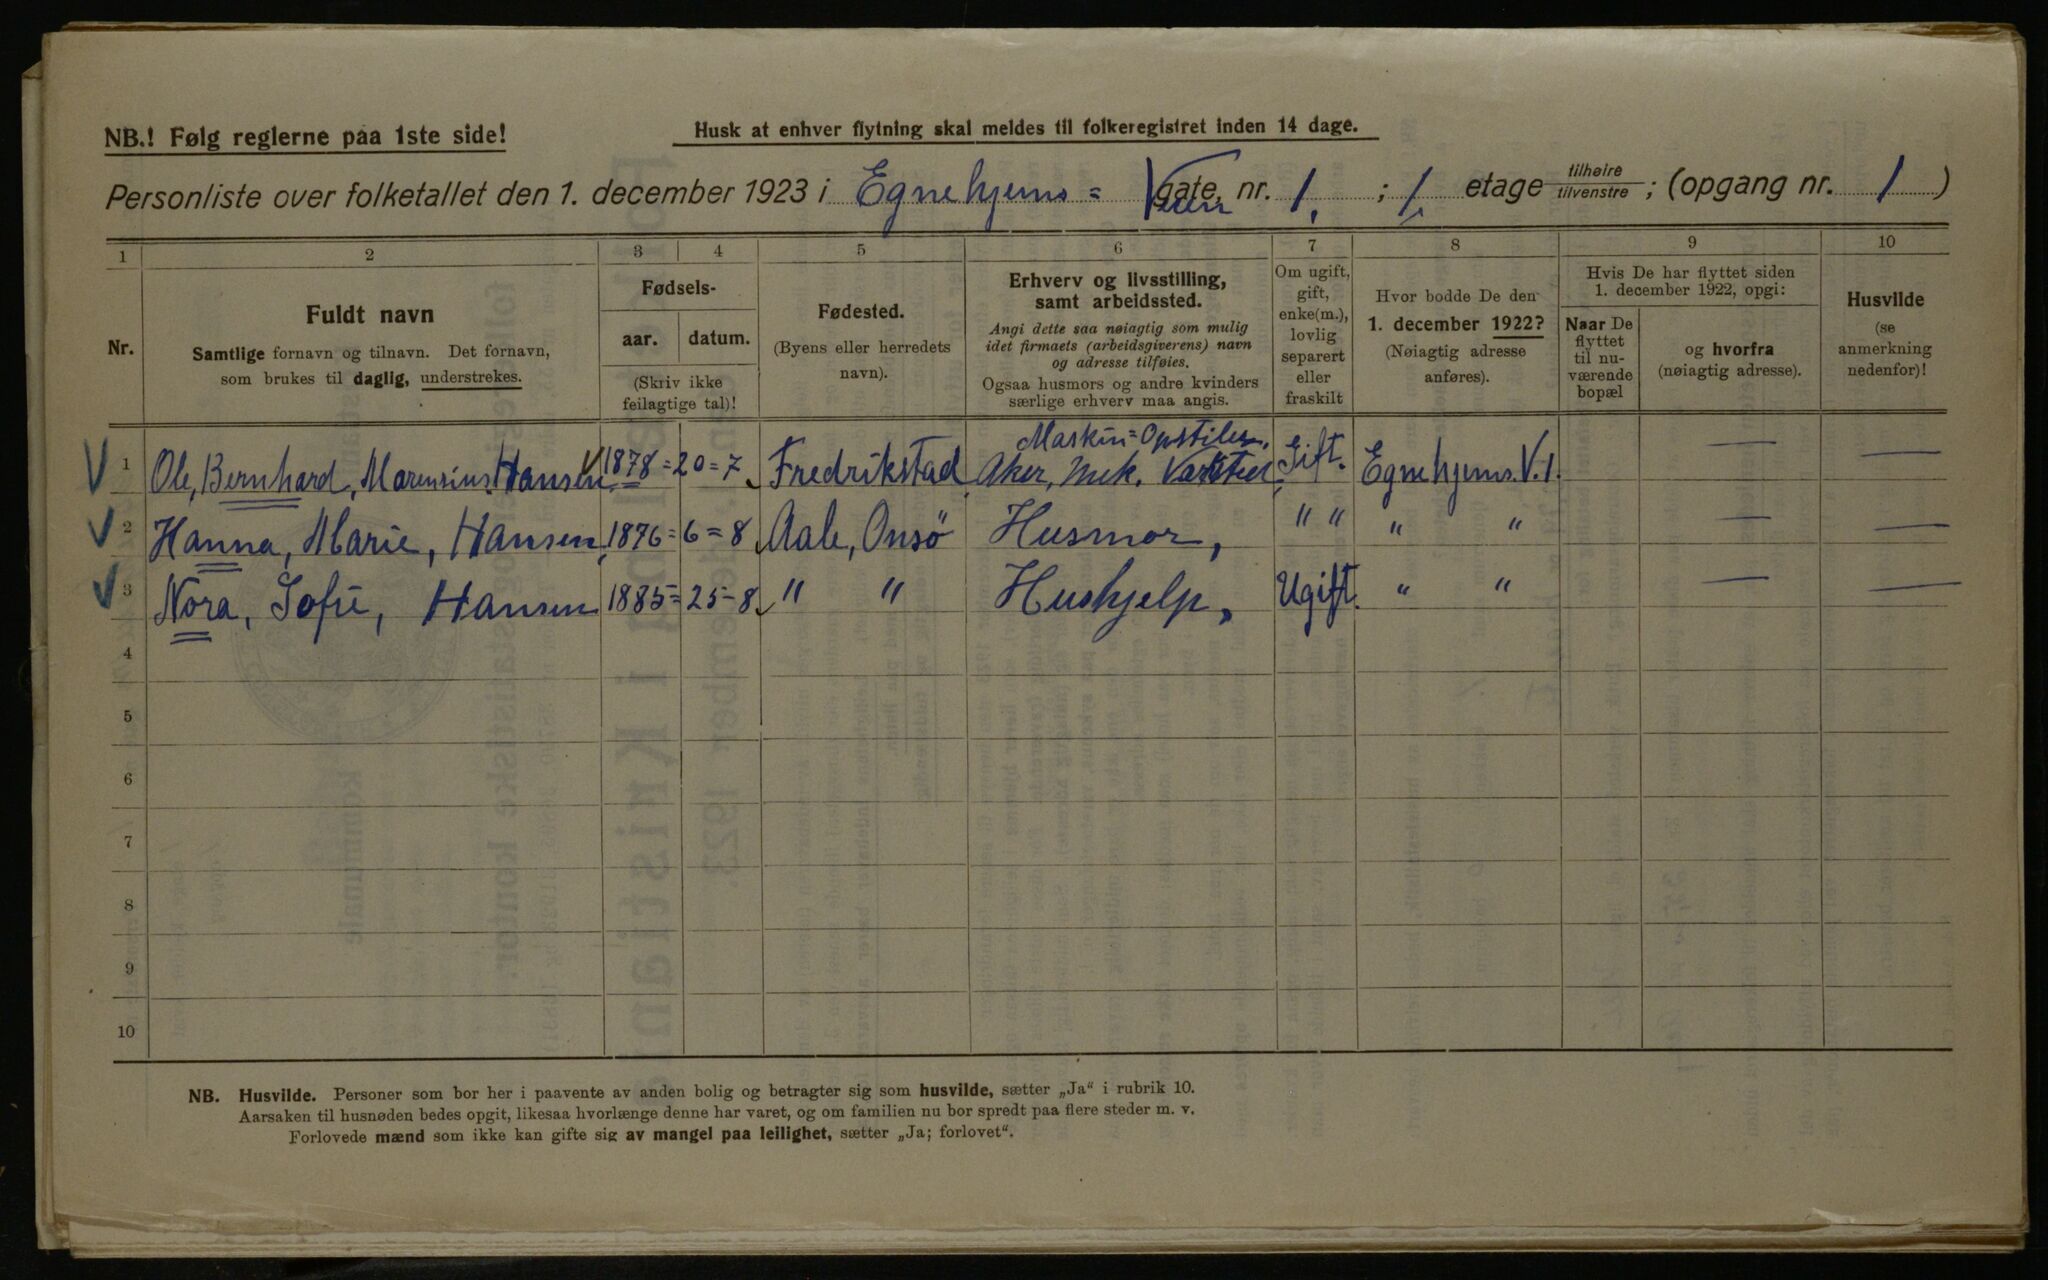 NB.! Følg reglerne paa 1ste side!
Husk at enhver flytning skal meldes til folkeregistret inden 14 dage.
Personliste over folketallet den 1. december 1923 i Egnehjems = Veien gate, nr. 1, ; 1, etage tilhøire tilvenstre ; (opgang nr. 1 )
1 2 3 4 5 6 7 8 9 10
Nr.
Fuldt navn
Samtlige fornavn og tilnavn. Det fornavn,
som brukes til daglig, understrekes.
Fødsels-
aar. datum.
(Skriv ikke
feilagtige tal)!
Fødested.
(Byens eller herredets
navn).
Erhverv og livsstilling,
samt arbeidssted.
Angi dette saa nøiagtig som mulig
idet firmaets (arbeidsgiverens) navn
og adresse tilføies.
Ogsaa husmors og andre kvinders
særlige erhverv maa angis.
Om ugift,
gift,
enke(m.),
lovlig
separert
eller
fraskilt
Hvor bodde De den
1. december 1922?
(Nøiagtig adresse
anføres).
Hvis De har flyttet siden
1. december 1922, opgi:
Naar De
flyttet
til nu-
værende
bopæl
og hvorfra
(nøiagtig adresse).
Husvilde
(se
anmerkning
nedenfor)!
Maskin=Opstiler,
V 1 Ole, Bernhard, Marensius, Hansen 1878=20=7 Fredrikstad Aker, Mek. Værksted Gift. Egnehjems.V.1. — —
V 2 Hanna, Marie, Hansen, 1876=6=8 Aale, Onsö Husmor, " " " " — —
V 3 Nora, Sofie, Hansen 1885=25-8 " " Hushjelp, Ugift. " " — —
4
5
6
7
8
9
10
NB. Husvilde. Personer som bor her i paavente av anden bolig og betragter sig som husvilde, sætter „Ja“ i rubrik 10.
Aarsaken til husnøden bedes opgit, likesaa hvorlænge denne har varet, og om familien nu bor spredt paa flere steder m. v.
Forlovede mænd som ikke kan gifte sig av mangel paa leilighet, sætter „Ja; forlovet“.